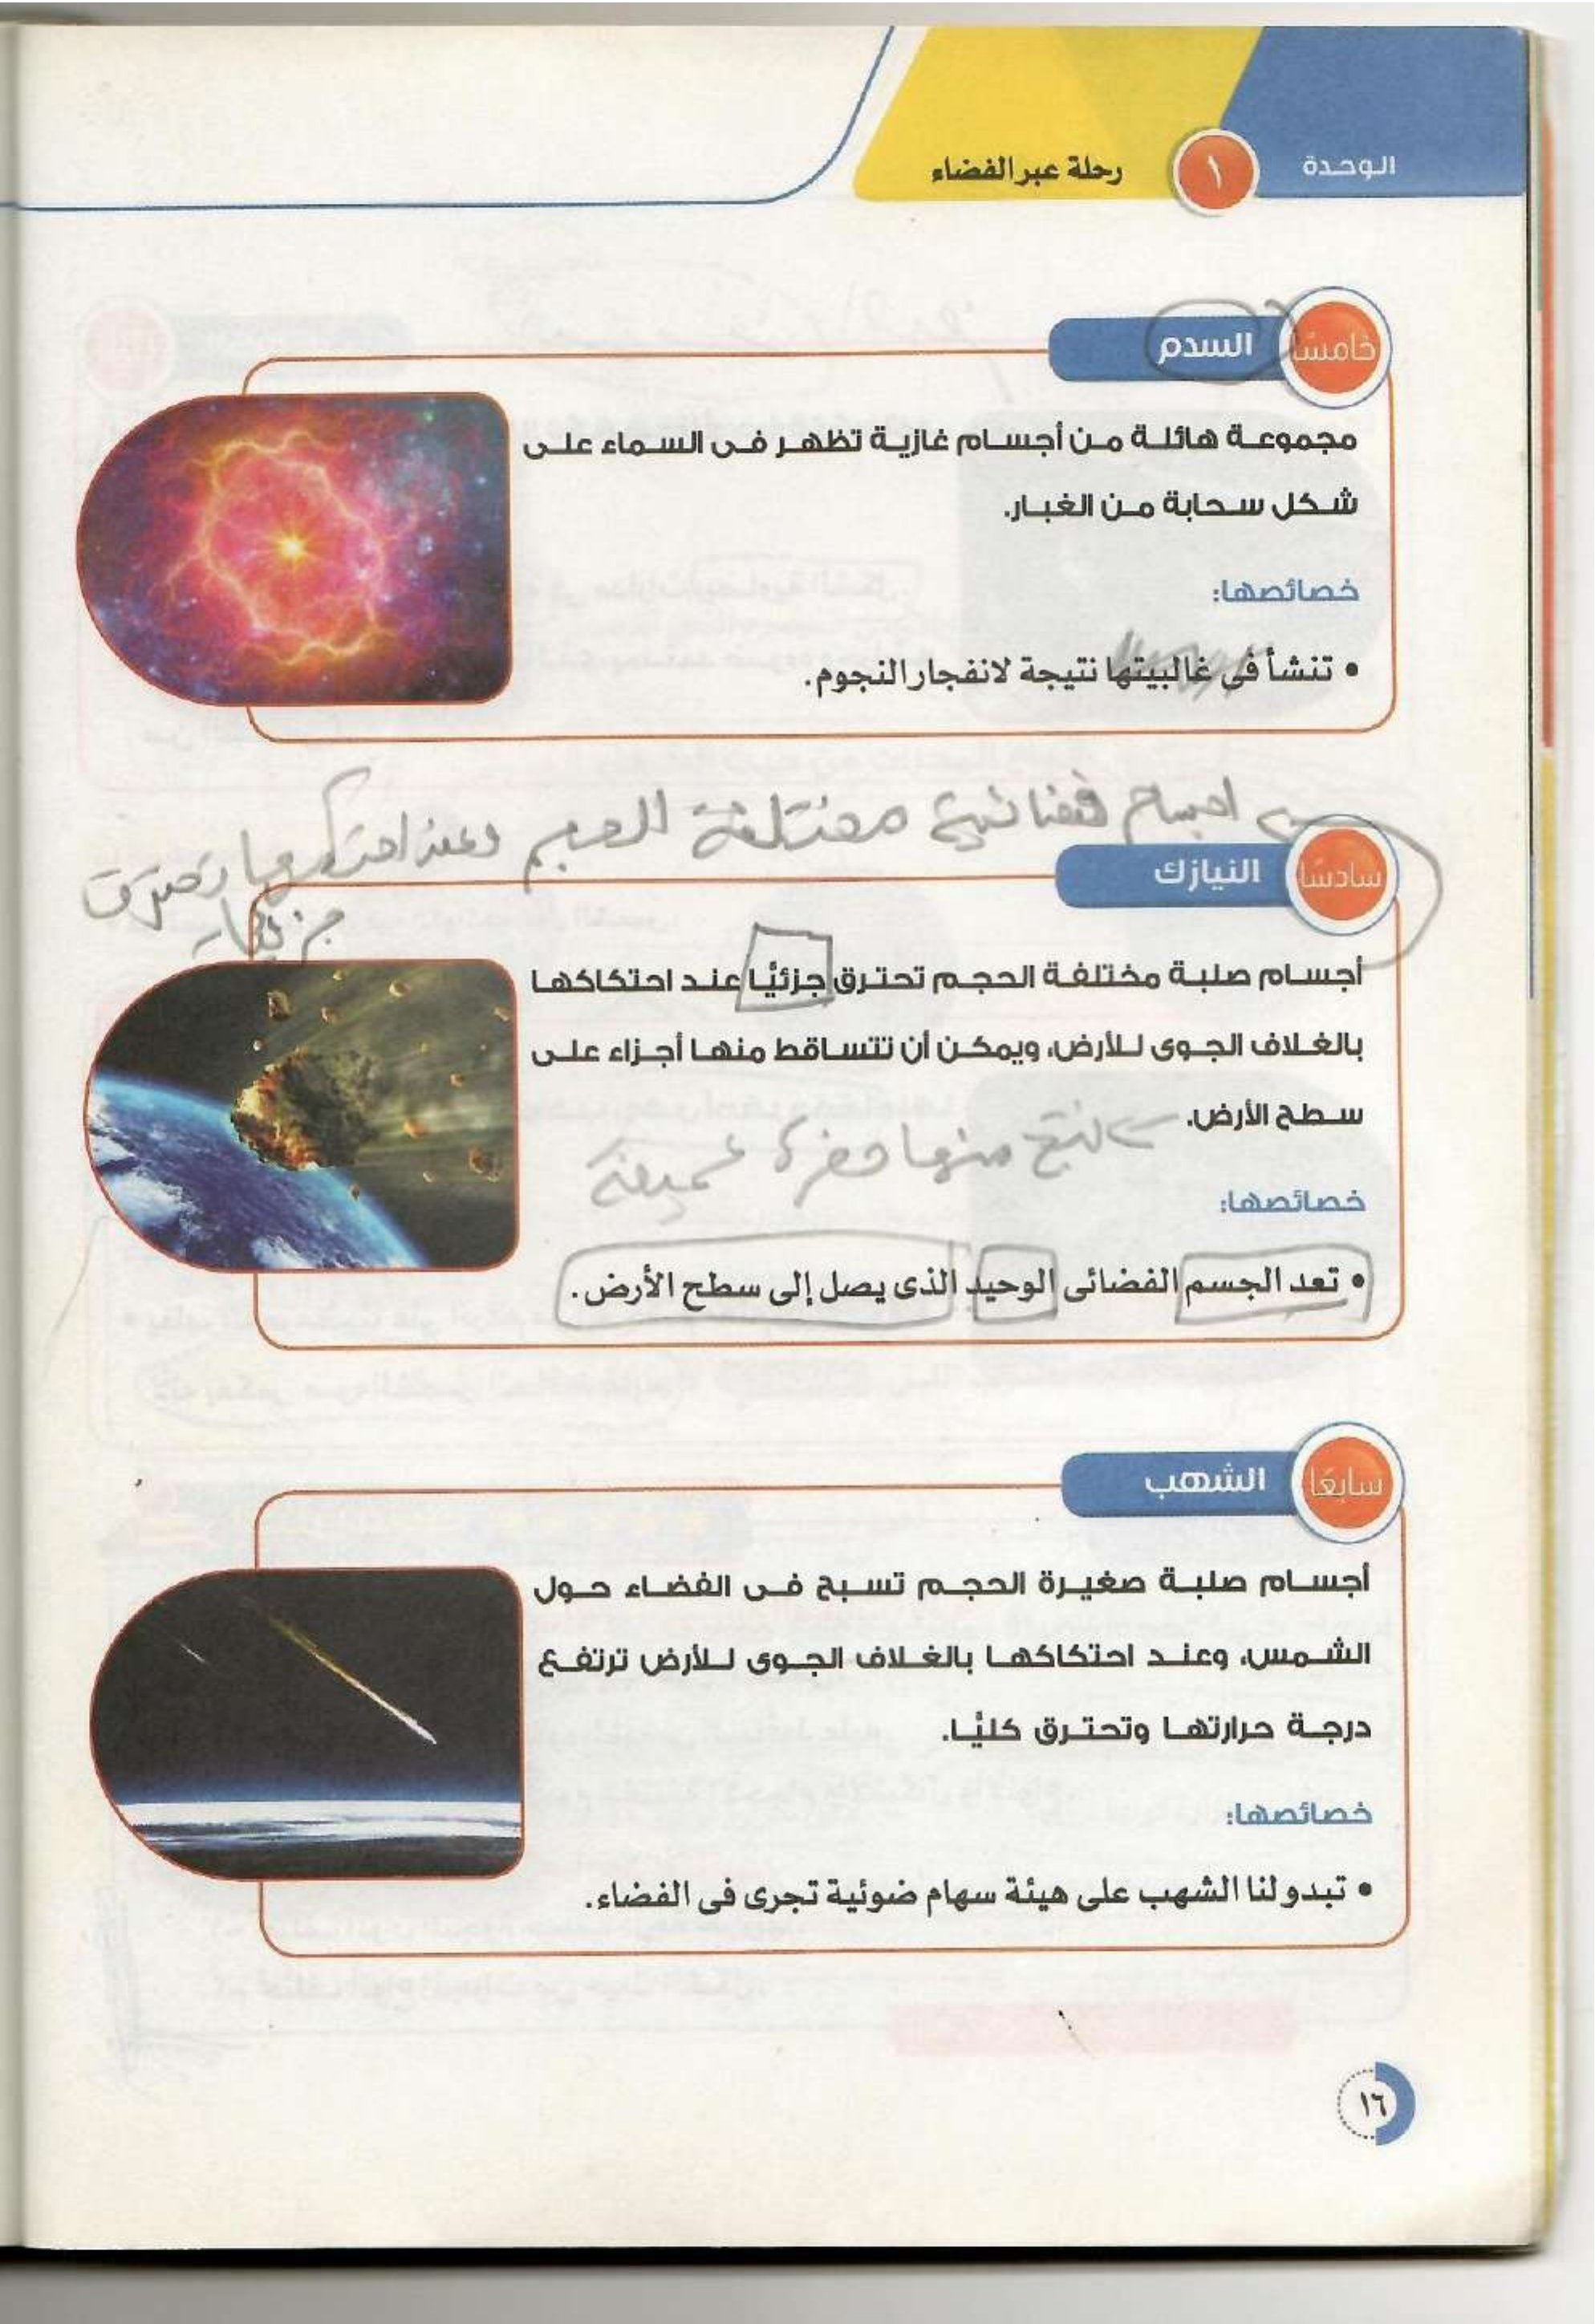 الوحدة ١ رحلة عبر الفضاء
خامسًا السدم
مجموعة هائلة من أجسام غازية تظهر فى السماء على
شكل سحابة من الغبار.
خصائصها:
• تنشأ فى غالبيتها نتيجة لانفجار النجوم.
اجسام فضائية مختلفة الحجم وعند احتكاكها تحترق
جزئيا
سادسًا النيازك
أجسام صلبة مختلفة الحجم تحترق جزئيًا عند احتكاكها
بالغلاف الجوى للأرض، ويمكن أن تتساقط منها أجزاء على
سطح الأرض.
ينتج منها حفرة عميقة
خصائصها:
• تعد الجسم الفضائى الوحيد الذى يصل إلى سطح الأرض.
سابعًا الشهب
أجسام صلبة صغيرة الحجم تسبح فى الفضاء حول
الشمس، وعند احتكاكها بالغلاف الجوى للأرض ترتفع
درجة حرارتها وتحترق كليًا.
خصائصها:
• تبدو لنا الشهب على هيئة سهام ضوئية تجرى فى الفضاء.
١٦